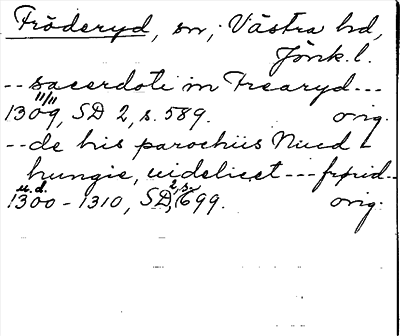 Fröderyd, sn, Västra hd,
Jönk. l.
-- sacerdoti in Frearyd ---
11/11
1309, SD 2, s. 589. orig.
-- de his parochiis Niud-
hungie, uidelicet --- frørid--
u.d.
1300-1310, SD 2, s. 699. orig.